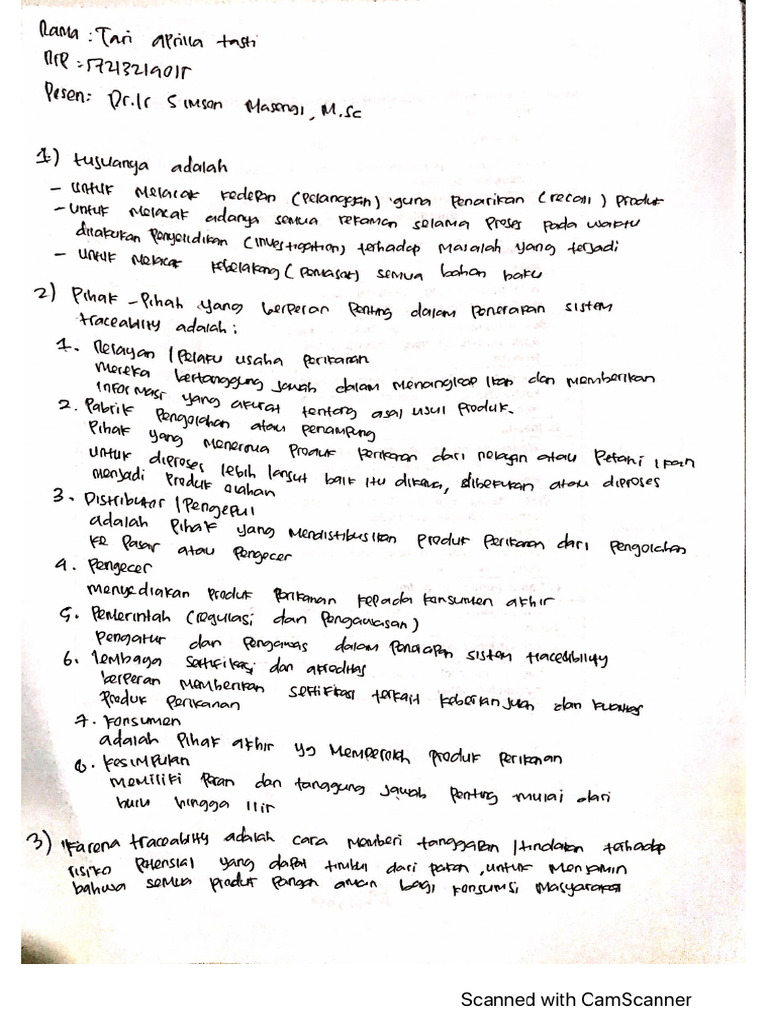 Nama : Tari aprilia tasti
NRP : 57213219015
Dosen: Dr.Ir Simson Masengi, M.Sc
1) tujuanya adalah
- untuk melacak kedepan (pelanggan) guna penarikan (recall) produk
- untuk melacak adanya semua rekaman selama proses pada waktu
dilakukan penyelidikan (investigation) terhadap masalah yang terjadi
- untuk melacak kebelakang (pemasok) semua bahan baku
2) Pihak - Pihak yang berperan penting dalam penerapan sistem
traceability adalah :
1. Nelayan / Pelaku usaha perikanan
mereka bertanggung jawab dalam menangkap ikan dan memberikan
informasi yang akurat tentang asal usul produk.
2. Pabrik pengolahan atau penampung
Pihak yang menerima produk perikanan dari nelayan atau petani ikan
untuk diproses lebih lanjut baik itu dikemas, dibekukan atau diproses
menjadi produk olahan
3. Distributor / Pengepul
adalah pihak yang mendistibusikan produk perikanan dari pengolahan
ke pasar atau pengecer
4. Pengecer
menyediakan produk perikanan kepada konsumen akhir
5. Pemerintah (regulasi dan pengawasan)
Pengatur dan pengawas dalam penerapan sistem traceability
6. Lembaga sertifikasi dan akreditas
berperan memberikan sertifikasi terkait keberlanjutan dan kualitas
produk perikanan
7. Konsumen
adalah pihak akhir yg memperoleh produk perikanan
8. Kesimpulan
memiliki peran dan tanggung jawab penting mulai dari
hulu hingga ilir
3) Karena traceability adalah cara memberi tanggapan / tindakan terhadap
risiko potensial yang dapat timbul dari pakan, untuk menjamin
bahwa semua produk pangan aman bagi konsumsi masyarakat
Scanned with CamScanner